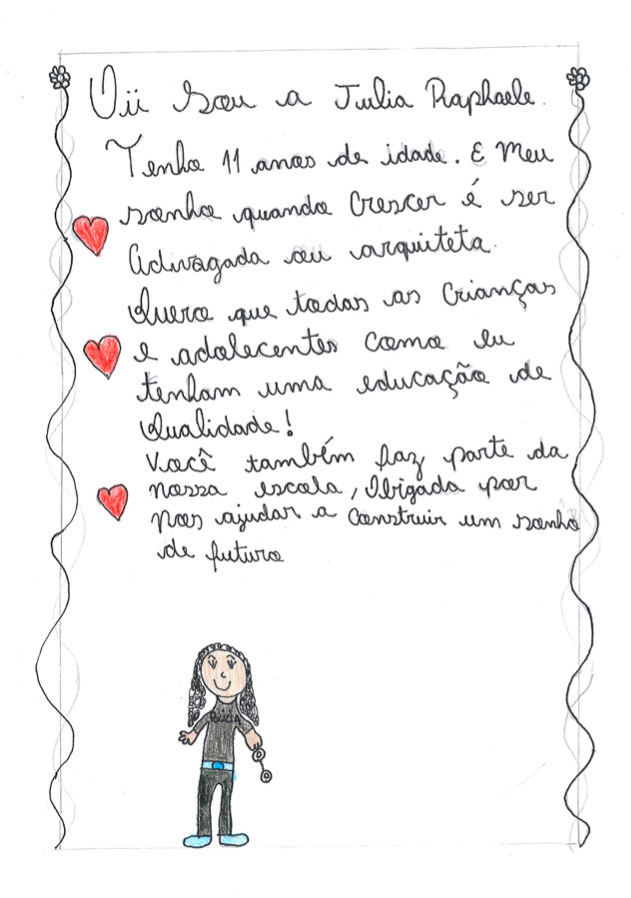 Oii Sou a Julia Raphaele.
Tenho 11 anos de idade. E Meu
sonho quando Crescer é ser
Advogada ou arquiteta.
Quero que todas as Crianças
e adolecentes como eu
tenham uma educação de
Qualidade!
Você também faz parte da
nossa escola, Obigada por
nos ajudar a Construir um sonho
de futuro
POLÍCIA